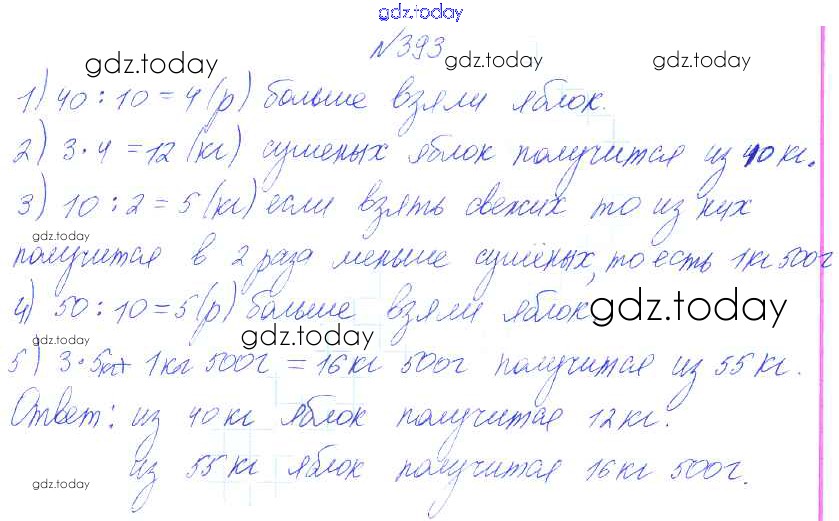 gdz.today
№393
gdz.today gdz.today gdz.today
1) 40 : 10 = 4 (р) больше взяли яблок.
2) 3 · 4 = 12 (кг) сушеных яблок получится из 40 кг.
3) 10 : 2 = 5 (кг) если взять свежих то из них
gdz.today
получится в 2 раза меньше сушёных, то есть 1кг 500г
4) 50 : 10 = 5 (р) больше взяли яблок
gdz.today gdz.today
5) 3·5кг+ 1кг 500г = 16кг 500г получится из 55кг.
Ответ: из 40кг яблок получится 12кг.
из 55кг яблок получится 16кг 500г.
gdz.today gdz.today gdz.today